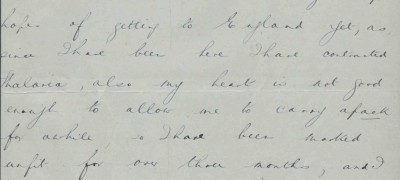 hopes of getting to England yet, as
since I have been here I have contracted
Malaria, also my heart is not good
enough to allow me to carry a pack
for awhile, so I have been marked
unfit for over three months, and I